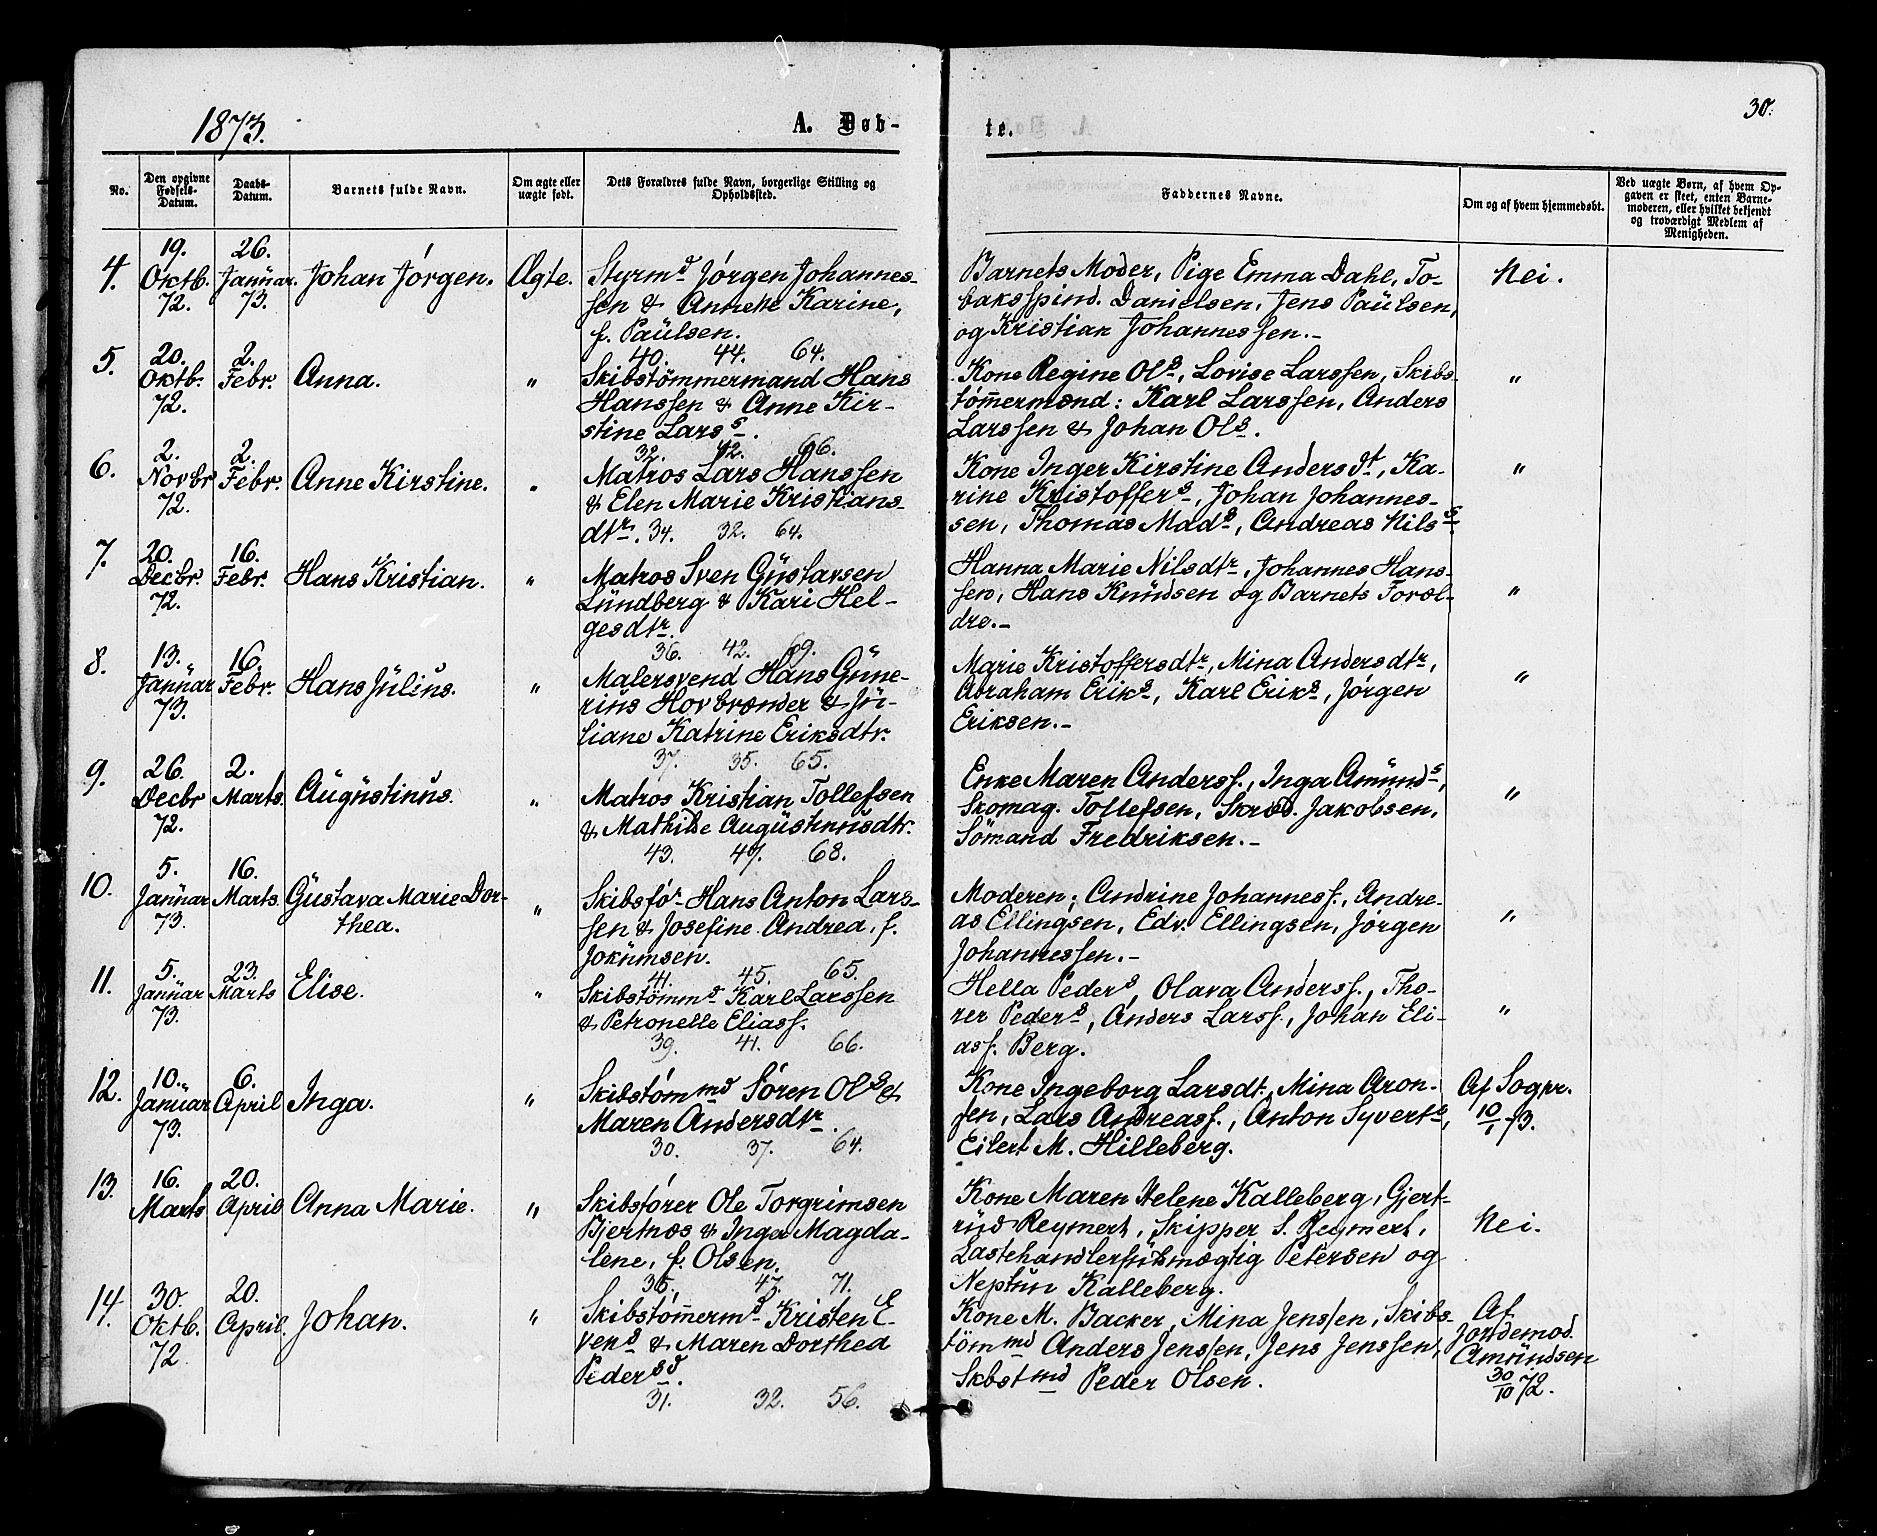 1873.
A. Døb-
te.
30.
No.
Den opgivne Fødsels-Datum.
Daabs-Datum.
Barnets fulde Navn.
Om ægte eller uægte født.
Dets Forældres fulde Navn, borgerlige Stilling og Opholdssted.
Faddernes Navne.
Om og af hvem hjemmedøbt.
Ved uægte Børn, af hvem Op-
gaven er skeet, enten Barne-
moderen, eller hvilket bekjendt
og troværdigt Medlem af
Menigheden.
4. 19. Oktb. 72. 26. Januar. 73. Johan Jörgen. Ægte.
Styrmd Jörgen Johannes-
sen & Annette Karine,
f. Paulsen.
40. 44. 64.
Barnets Moder, Pige Emma Dahl, To-
baksspind. Danielsen, Jens Paulsen,
og Kristian Johannessen.-
Nei.
5. 20. Oktb. 72. 2. Febr. Anna. "
Skibstömmermand Hans
Hanssen & Anne Kir-
stine Larss.
32. 42. 66.
Kone Regine Ols, Lovise Larssen, Skibs-
tömmermænd: Karl Larssen, Anders
Larssen & Johan Ols.
"
6. 2. Novbr 72. 2. Febr. Anne Kirstine. "
Matros Lars Hanssen
& Elen Marie Kristians-
dtr. 34. 32. 64.
Kone Inger Kirstine Andersdt, Ka-
rine Kristoffers, Johan Johannes-
sen, Thomas Mads, Andreas Nilss.
"
7. 20. Decbr. 72. 16. Febr. Hans Kristian. "
Matros Sven Gustavsen
Lundberg & Kari Hel-
gesdtr.
36. 42. 69.
Hanna Marie Nilsdtr, Johannes Hans-
sen, Hans Knudsen og Barnets Foræl-
dre.-
"
8. 13. Januar 73. 16. Febr. Hans Julius. "
Malersvend Hans Gune-
rius Hovbrænder & Ju-
liane Katrine Eriksdtr.
37. 35. 65.
Marie Kristoffersdtr, Mina Andersdtr,
Abraham Eriks, Karl Eriks, Jörgen
Eriksen.-
"
9. 26. Decbr 72. 2. Marts. Augustinus. "
Matros Kristian Tollefsen
& Mathilde Augustinusdtr.
43. 47. 68.
Enke Maren Anderss., Inga Amunds,
Skomag. Tollefsen, Skræd. Jakobsen,
Sömand Fredriksen.-
"
10. 5. Januar 73. 16. Marts. Gustava Marie Dor-
thea. "
Skibsför Hans Anton Lars-
sen & Josefine Andrea, f.
Jokumsen.
41. 45. 65.
Moderen; Andrine Johanness., Andre-
as Ellingsen, Edv. Ellingsen, Jörgen
Johannessen.-
"
11. 5. Januar 73. 23. Marts Elise. "
Skibstömmd Karl Larssen
& Petronelle Eliass.
39. 41. 66.
Hella Peders, Olava Anderss., Tho-
rer Peders, Anders Larss., Johan Eli-
ass. Berg.
"
12. 10. Januar 73. 6. April Inga. "
Skibstömmd Sören Ols &
Maren Andersdtr.
30. 37. 64.
Kone Ingeborg Larsdt, Mina Aron-
sen, Lars Andreass., Anton Syverts,
Eilert M. Hilleberg.
Af Sogpr.
10/1 73.
13. 16. Marts 20. April Anna Marie. "
Skibsförer Ole Torgrimsen
Bjertnæs & Inga Magda-
lene, f. Olsen.
35. 47. 71.
Kone Maren Helene Kalleberg, Gjert-
rud Reymert, Skipper S. Reymert,
Lastehandlerfuldmægtig Petersen og
Neptun Kalleberg.
Nei.
14. 30. Oktb. 72 20. April. Johan. "
Skibstömmermd Kristen E-
vens & Maren Dorthea
Pedersd.
31. 32. 56.
Kone M. Backer, Mina Jenssen, Skibs-
tömmd Anders Jenssen, Jens Jenssen,
Skbstmd Peder Olsen.
Af
Jordemod.
Amundsen
30/10 72.